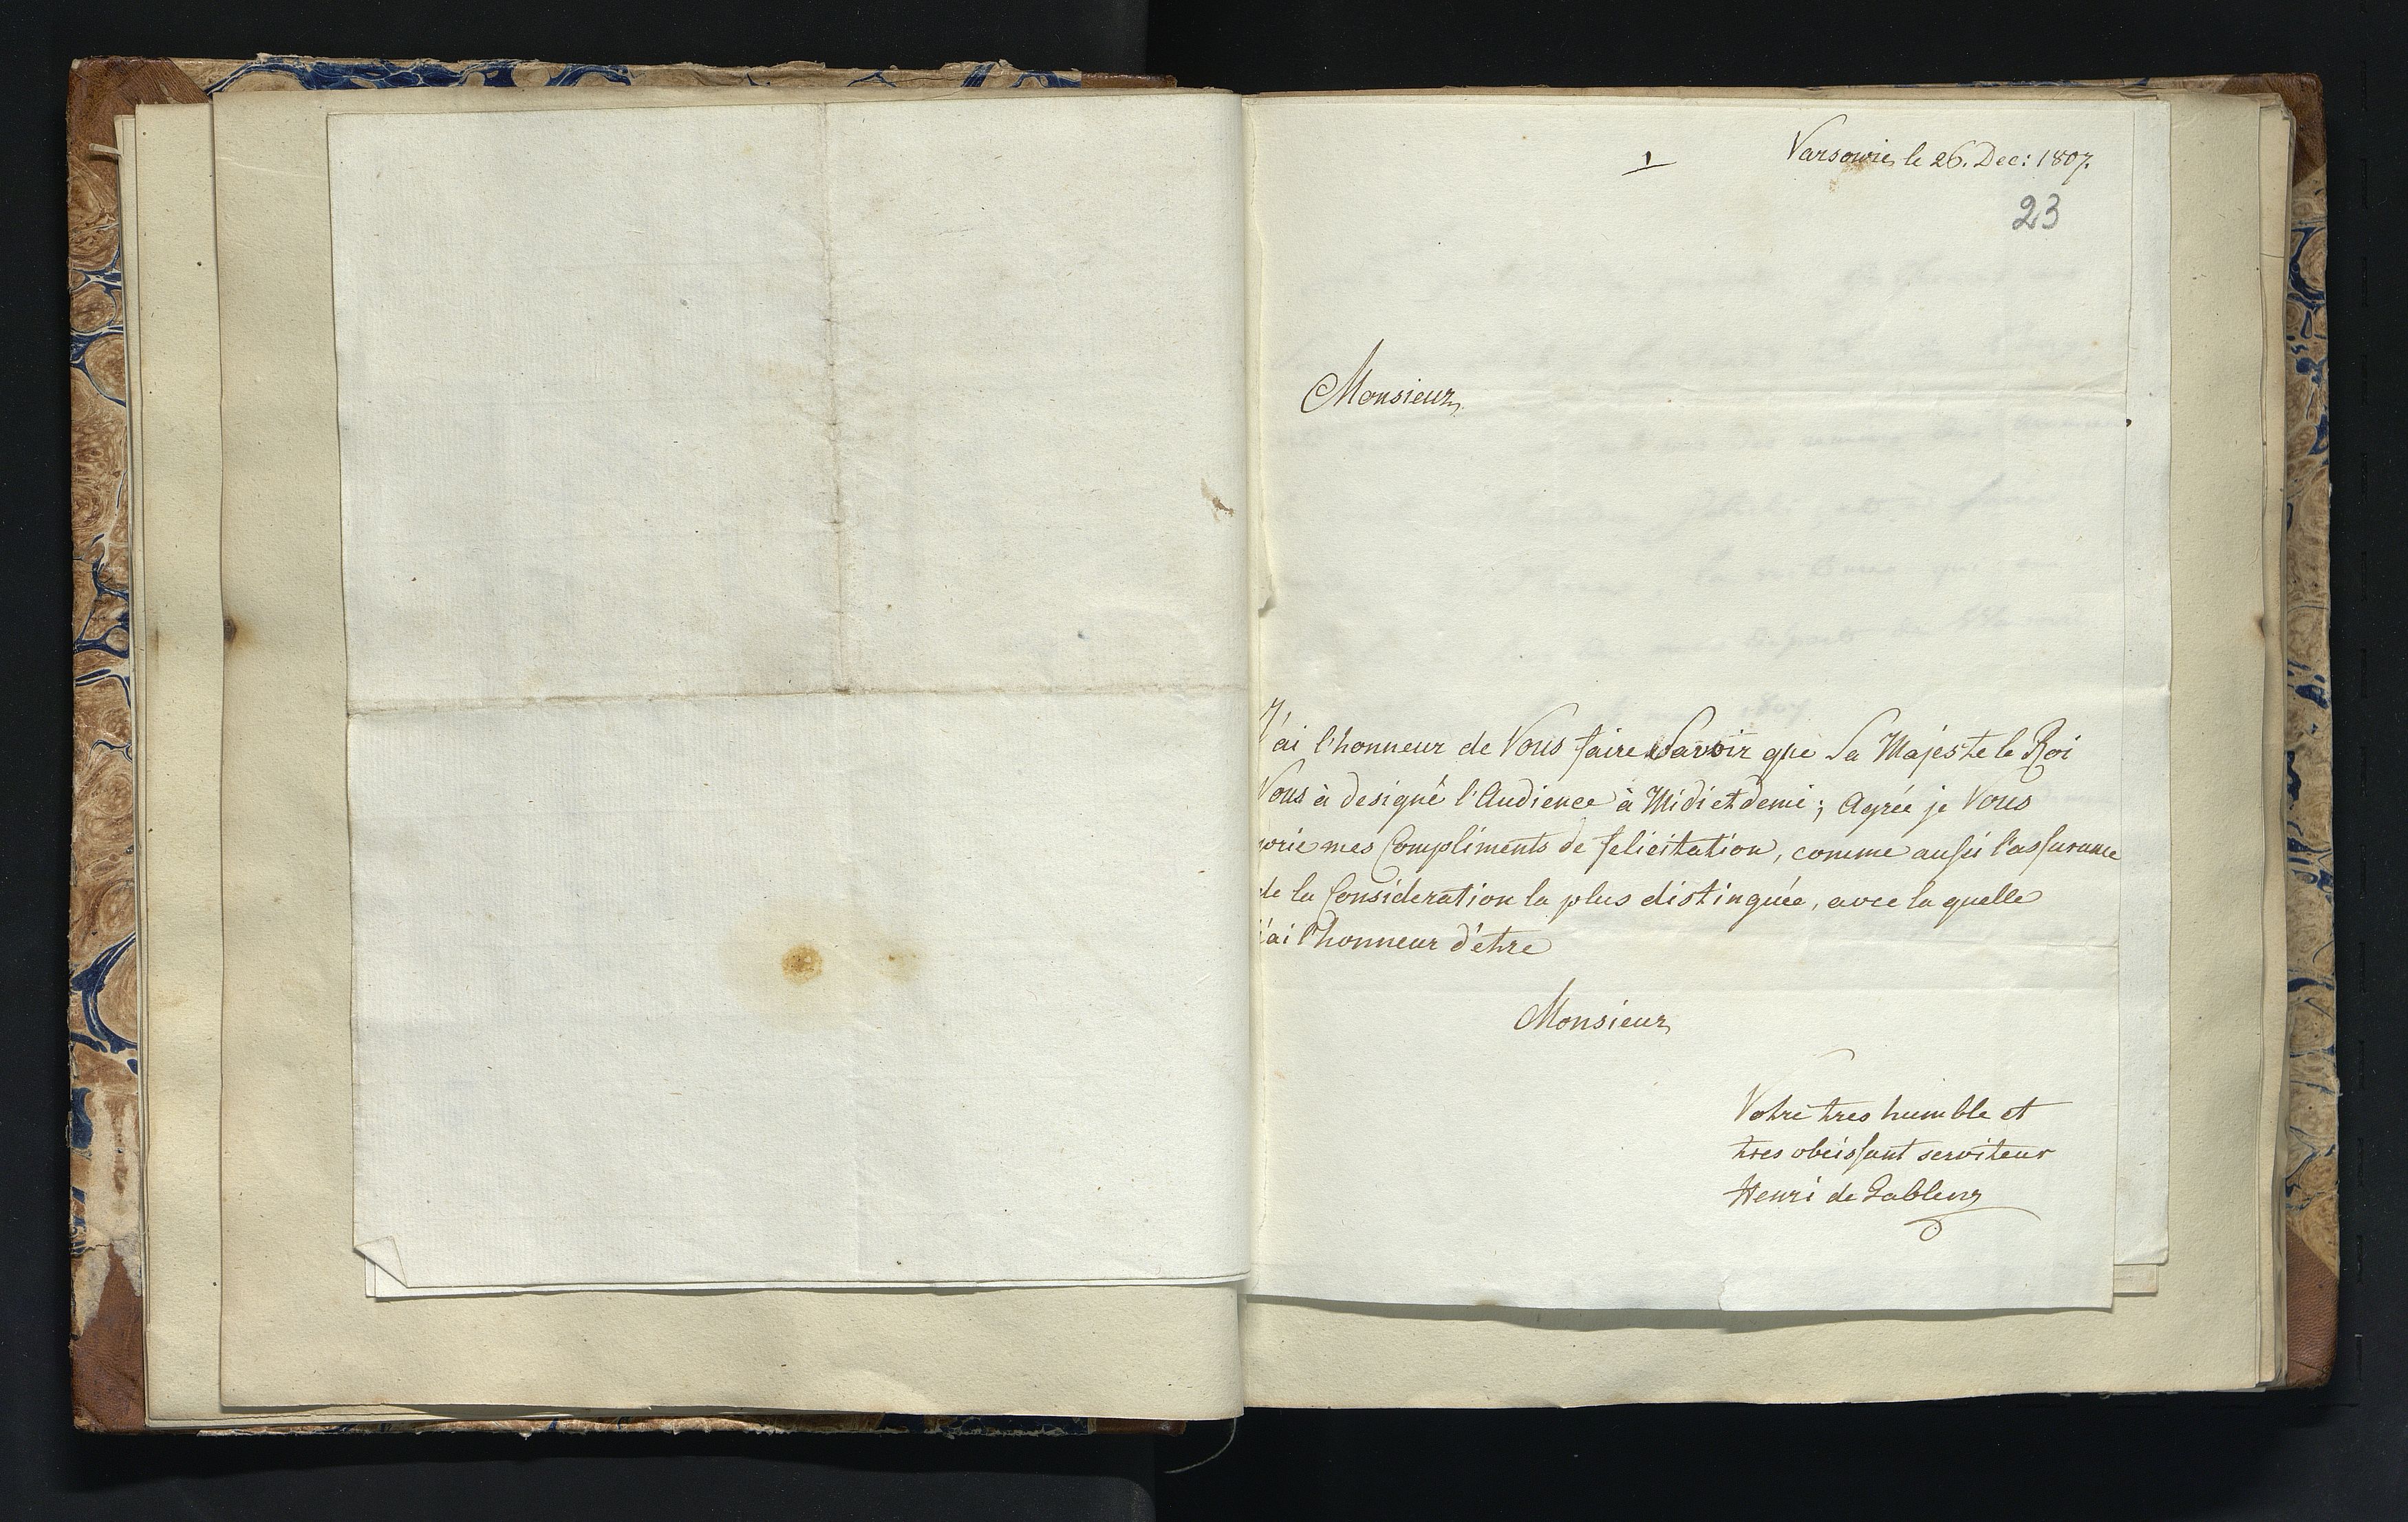 1
Varsowie le 26. Dec: 1807.
23
Monsieur,
J'ai l'honneur de Vous faire Savoir que Sa Majeste le Roi
Vous à designé l'Audience à Midi et demi; Agrée je Vous
prie mes Compliments de felicitation, comme aussi l'assurance
de la Consideration la plus distinguée, avec la quelle
j'ai l'honneur d'etre
Monsieur,
Votre tres humble et
tres obeissant serviteur
Henri de Gablenz